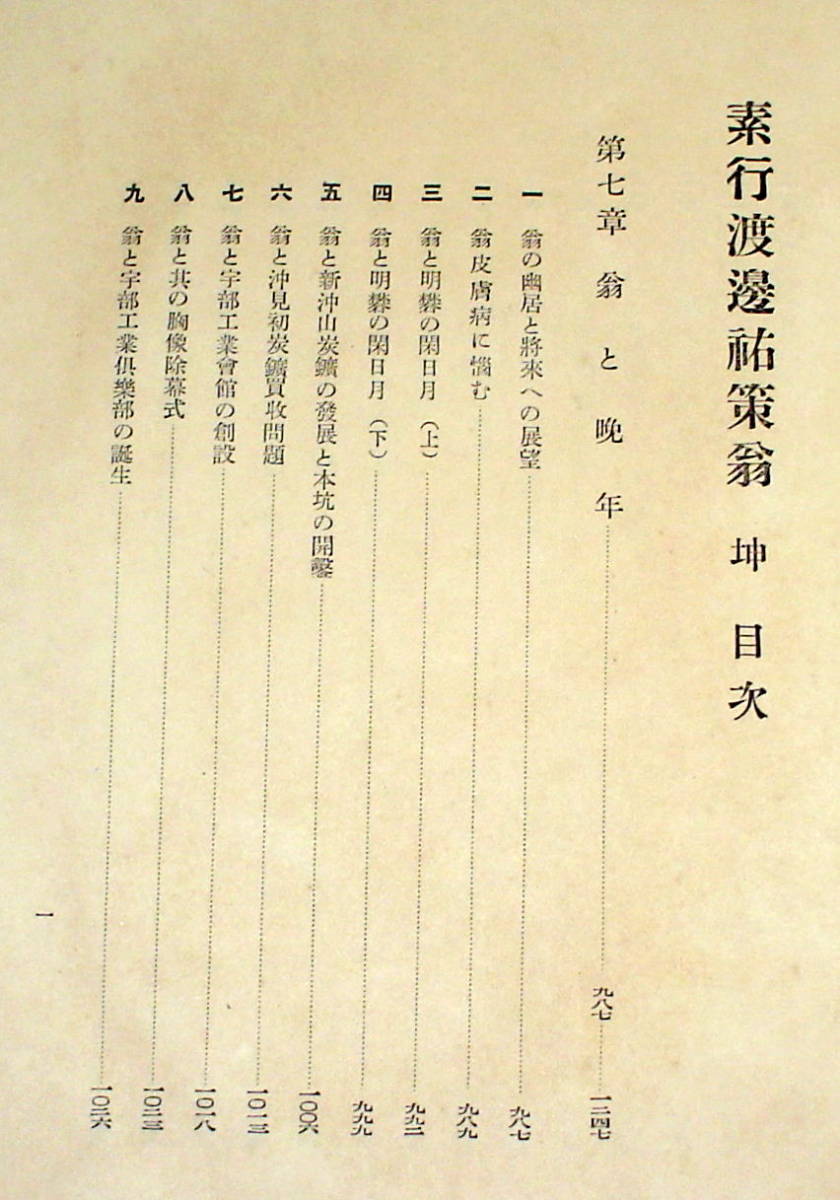 素行渡邊祐策翁 坤 目次
第七章 翁と晩年……九八七……一二四七
一 翁の幽居と將來への展望……九八七
二 翁皮膚病に惱む……九八九
三 翁と明礬の閑日月(上)……九九二
四 翁と明礬の閑日月(下)……九九九
五 翁と新沖山炭鑛の發展と本坑の開鑿……一〇〇六
六 翁と沖見初炭鑛買收問題……一〇一三
七 翁と宇部工業會館の創設……一〇一八
八 翁と其の胸像除幕式……一〇二三
九 翁と宇部工業倶樂部の誕生……一〇二六
一